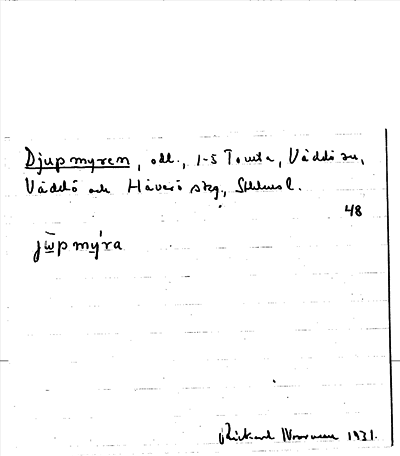 Djupmyren, odl., 1-5 Tomta, Väddö sn,
Väddö och Häverö skg, Sthlms l.
48
jup mýra
Rickard 1931.